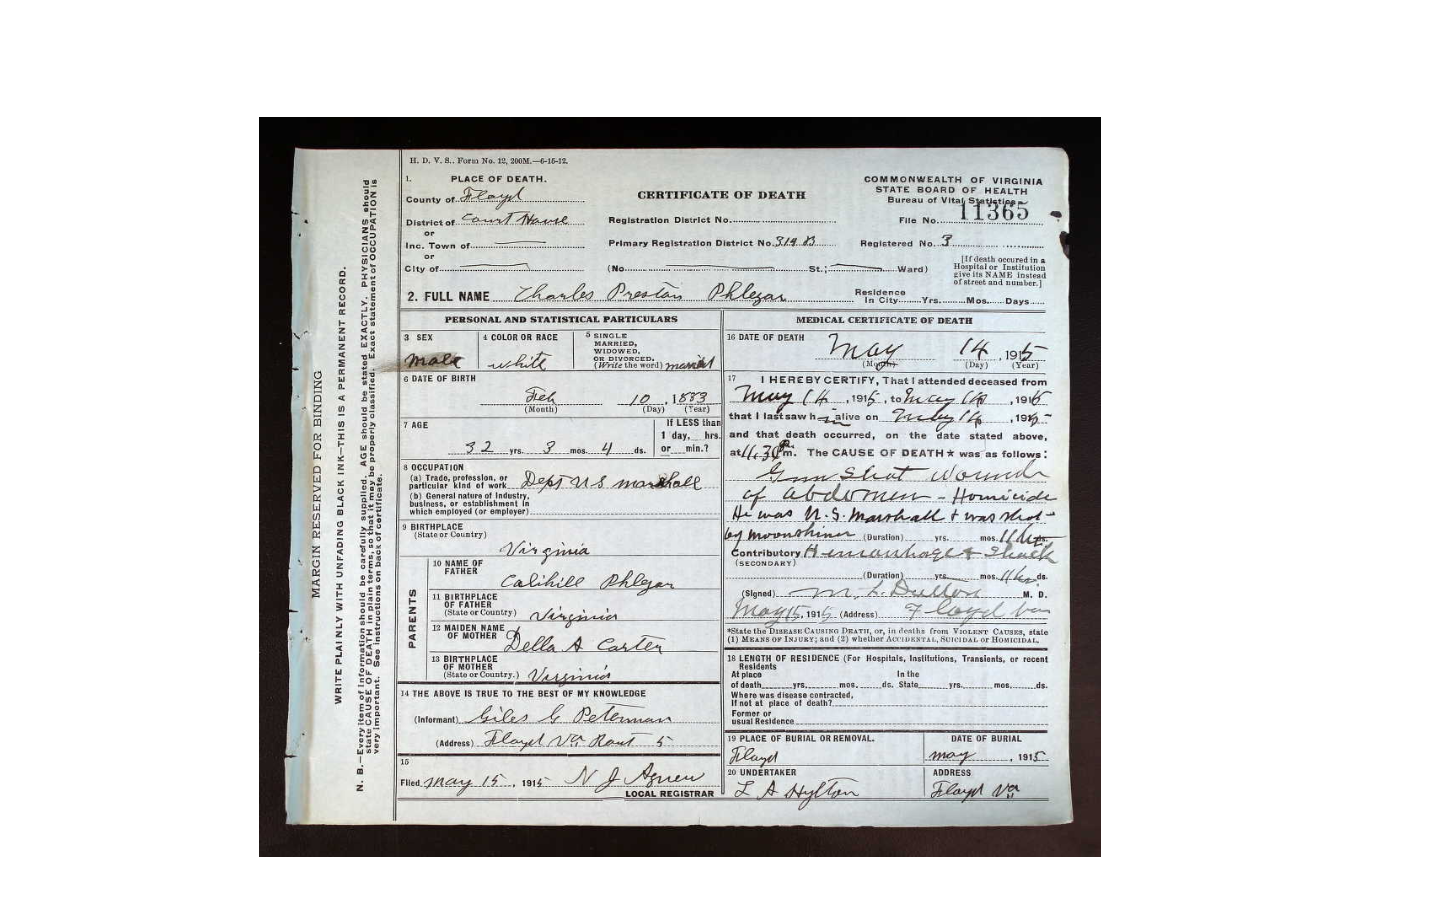 H. D. V. S.. Form No. 12, 200M.—6-15-12.
1. PLACE OF DEATH.
County of Floyd
District of Court House
or
Inc. Town of
or
City of
CERTIFICATE OF DEATH
Registration District No.
Primary Registration District No. 314 B
(No. St.; Ward)
COMMONWEALTH OF VIRGINIA
STATE BOARD OF HEALTH
Bureau of Vital Statistics
File No. 11365
Registered No. 3
[If death occured in a
Hospital or Institution
give its NAME instead
of street and number.]
2. FULL NAME Charles Preston Phlegar
Residence
In City Yrs. Mos. Days
PERSONAL AND STATISTICAL PARTICULARS
3 SEX
Male
4 COLOR OR RACE
White
5 SINGLE
MARRIED,
WIDOWED,
OR DIVORCED.
(Write the word) married
6 DATE OF BIRTH
Feb 10, 1883
(Month) (Day) (Year)
7 AGE
32 yrs. 3 mos. 4 ds.
If LESS than
1 day, hrs.
or min.?
8 OCCUPATION
(a) Trade, profession, or
particular kind of work Dept U S marshall
(b) General nature of Industry,
business, or establishment in
which employed (or employer)
9 BIRTHPLACE
(State or Country)
Virginia
PARENTS
10 NAME OF
FATHER
Phlegar
11 BIRTHPLACE
OF FATHER
(State or Country) Virginia
12 MAIDEN NAME
OF MOTHER Della A Carter
13 BIRTHPLACE
OF MOTHER
(State or Country.) Virginia
14 THE ABOVE IS TRUE TO THE BEST OF MY KNOWLEDGE
(Informant) Giles G Peterman
(Address) Floyd Va Rout 5
15
Filed May 15, 1915 N J Agnew
LOCAL REGISTRAR
MEDICAL CERTIFICATE OF DEATH
16 DATE OF DEATH
May 14, 1915
(Month) (Day) (Year)
17 I HEREBY CERTIFY, That I attended deceased from
May 14, 1915, to May 14, 1915
that I last saw him alive on May 14, 1915
and that death occurred, on the date stated above,
at 11.30 Pm. The CAUSE OF DEATH★ was as follows:
Gun Shot wound
of abdomen - Homicide
He was U.S. Marshall & was shot
by moonshiner (Duration) yrs. mos. ds.
Contributory Hemorrhage & Shock
(SECONDARY)
(Duration) yrs. mos. ds.
(Signed) M. L. Dalton M. D.
May 15, 1915 (Address) Floyd Va
*State the DISEASE CAUSING DEATH, or, in deaths from VIOLENT CAUSES, state
(1) MEANS OF INJURY; and (2) whether ACCIDENTAL, SUICIDAL or HOMICIDAL.
18 LENGTH OF RESIDENCE (For Hospitals, Institutions, Transients, or recent
Residents
At place In the
of death yrs. mos. ds. State yrs. mos. ds.
Where was disease contracted,
If not at place of death?
Former or
usual Residence
19 PLACE OF BURIAL OR REMOVAL.
Floyd
DATE OF BURIAL
May, 1915
20 UNDERTAKER
L A Hylton
ADDRESS
Floyd Va
MARGIN RESERVED FOR BINDING
WRITE PLAINLY WITH UNFADING BLACK INK—THIS IS A PERMANENT RECORD.
N. B.—Every item of information should be carefully supplied. AGE should be stated EXACTLY. PHYSICIANS should
state CAUSE OF DEATH in plain terms, so that it may be properly classified. Exact statement of OCCUPATION is
very important. See instructions on back of certificate.